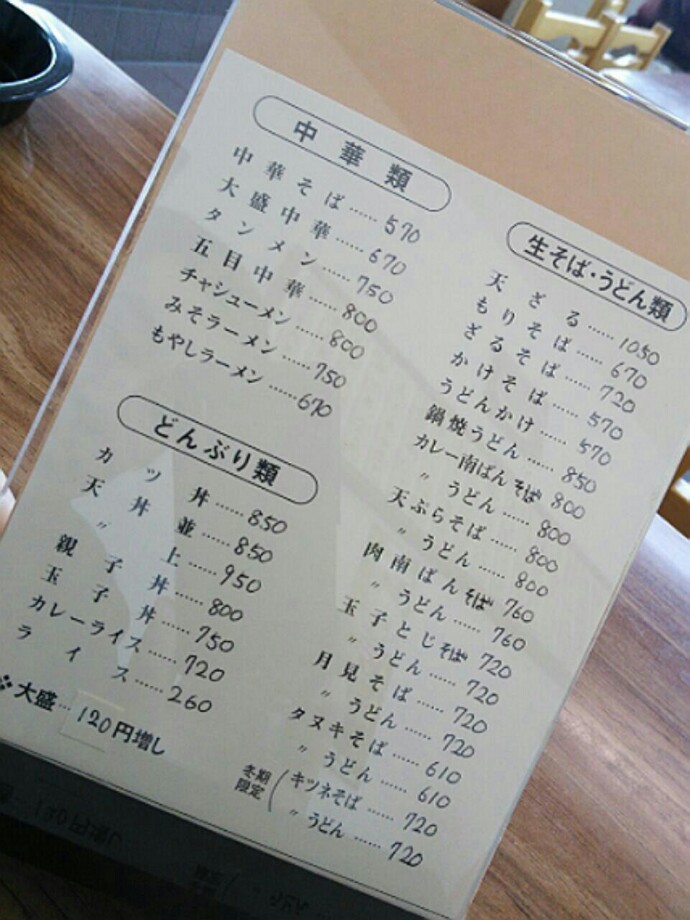 中華類
中華そば……570
大盛中華……670
タンメン……750
五目中華……800
チャシューメン……800
みそラーメン……750
もやしラーメン……670
どんぶり類
カツ丼……850
天丼並……850
〃上……950
親子丼……800
玉子丼……750
カレーライス……720
ライス……260
※大盛…120円増し
生そば・うどん類
天ざる……1050
もりそば……670
ざるそば……720
かけそば……570
うどんかけ……570
鍋焼うどん……850
カレー南ばんそば 800
〃うどん……800
天ぷらそば……800
〃うどん……800
肉南ばんそば 760
〃うどん……760
玉子とじそば 720
〃うどん……720
月見そば……720
〃うどん……720
タヌキそば……610
〃うどん……610
冬期限定
キツネそば……720
〃うどん……720